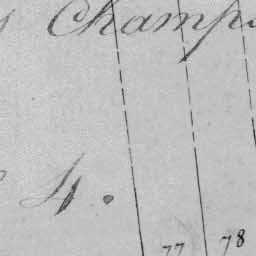 Champ
4.
77 78